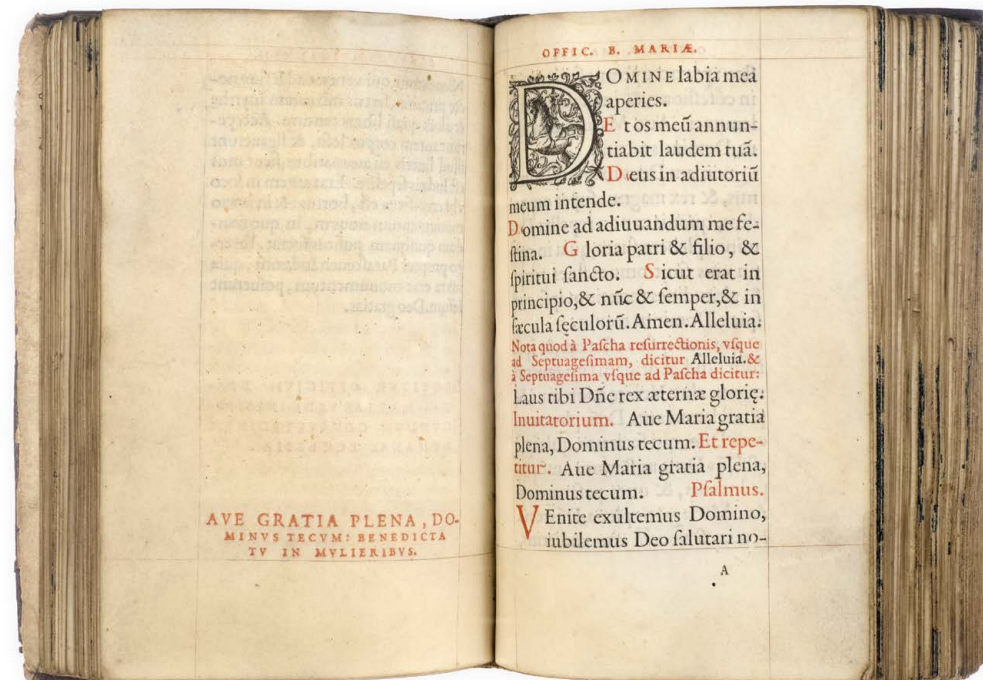 AVE GRATIA PLENA, DO-
MINVS TECVM: BENEDICTA
TV IN MVLIERIBVS.
OFFIC. B. MARIÆ.
DOMINE labia mea
aperies.
Et os meū annun-
tiabit laudem tuā.
Deus in adiutoriū
meum intende.
Domine ad adiuuandum me fe-
ſtina. Gloria patri & filio, &
ſpiritui ſancto. Sicut erat in
principio, & nūc & ſemper, & in
ſæcula ſęculorū. Amen. Alleluia.
Nota quod à Paſcha reſurrectionis, vſque
ad Septuageſimam, dicitur Alleluia. &
à Septuageſima vſque ad Paſcha dicitur:
Laus tibi Dñe rex æternæ glorię.
Inuitatorium. Aue Maria gratia
plena, Dominus tecum. Et repe-
titur. Aue Maria gratia plena,
Dominus tecum. Pſalmus.
VEnite exultemus Domino,
iubilemus Deo ſalutari no-
A